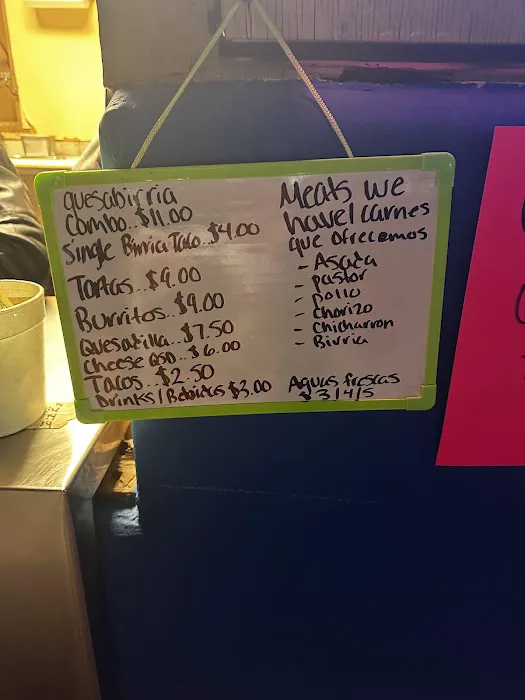 quesabirria
Combo..$11.00
Single Birria Taco..$4.00
Tortas..$9.00
Burritos..$9.00
Quesadilla..$7.50
Cheese QSD..$6.00
Tacos..$2.50
Drinks/Bebidas $3.00
Meats we
have/carnes
que ofrecemos
- Asada
- pastor
- pollo
- Chorizo
- Chicharron
- Birria
Aguas frescas
$3/4/5